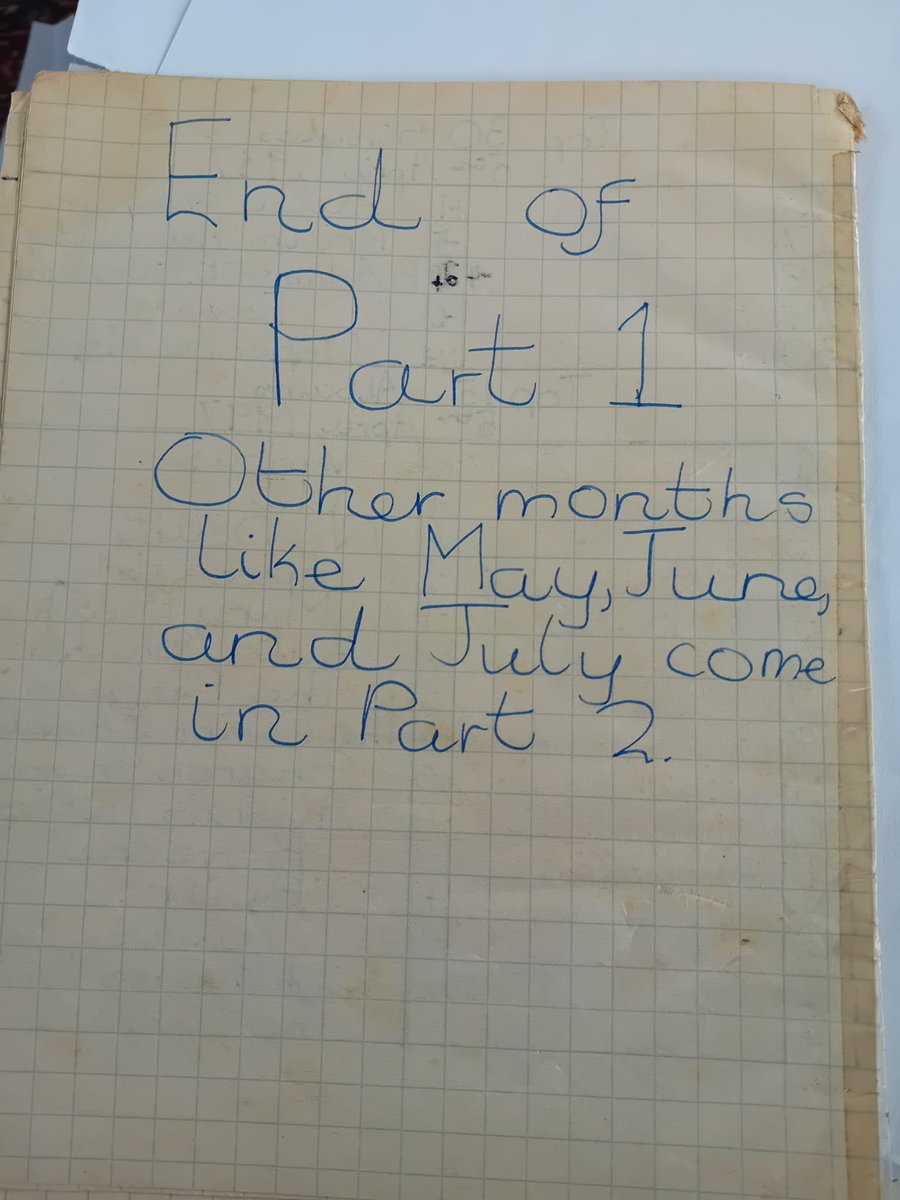 End of
Part 1
Other months
like May, June,
and July come
in Part 2.